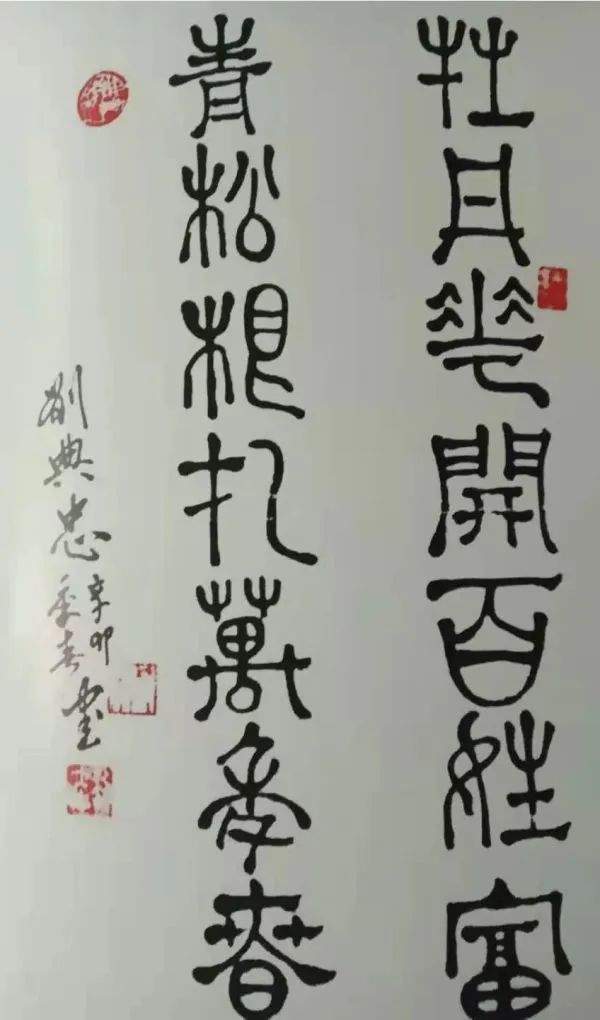 牡丹花開百姓富
青松根扎萬年春
劉典忠
辛卯
季春